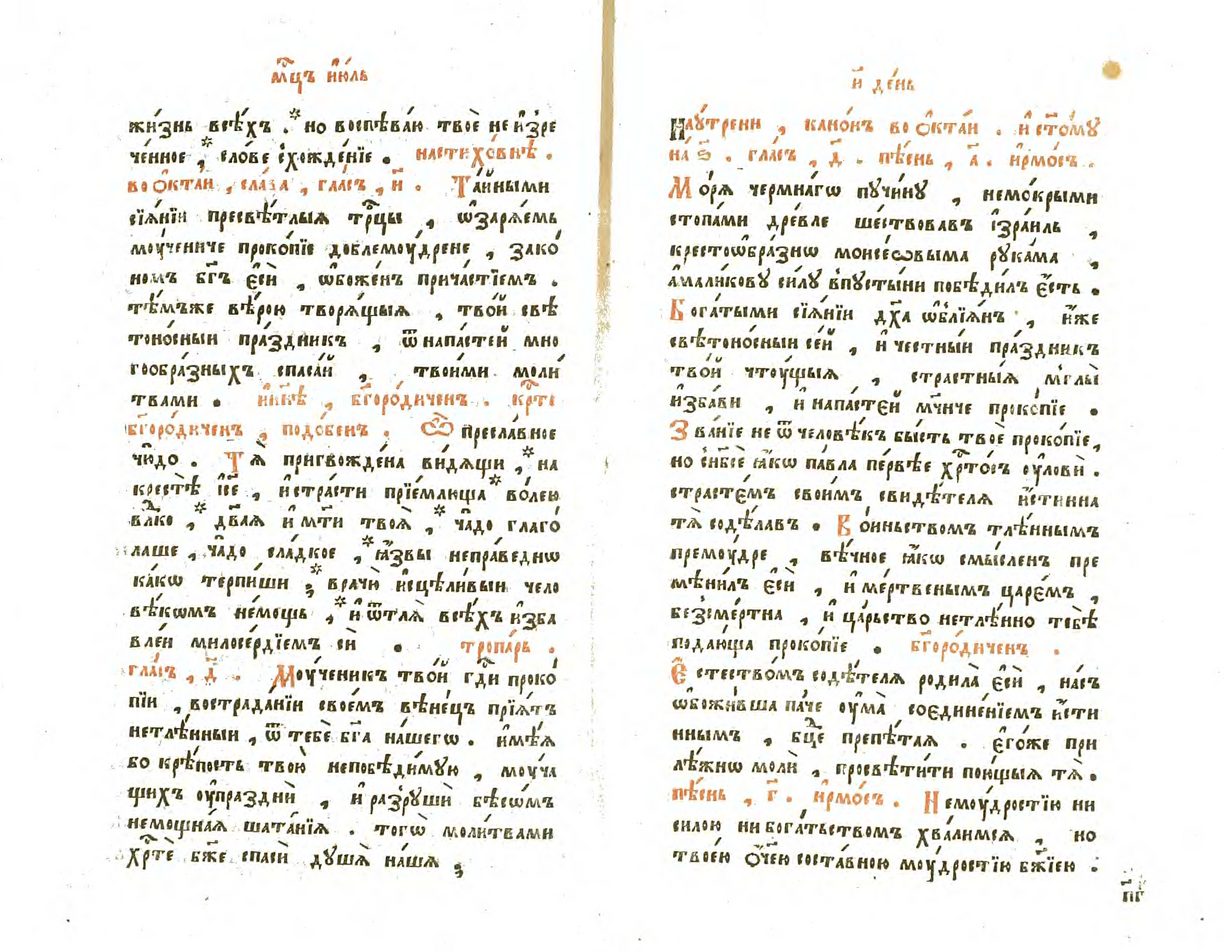 мц҃ъ ію́ль
жи́знь все́хъ . * но воспѣва́ю твоѐ не и҆зре
че́нное , * сло́ве схожде́нїе . настихо́внѣ .
во ѻ҆кта́и , сла́ва , гла́съ , и҃ . Та́йными
сїѧ́нїи пресвѣ́тлыѧ трⷪ҇цы , ѡ҆зарѧ́емь
моу́чениче проко́пїе доблемоу́дрене , зако́
номъ бг҃ъ є҆сѝ , ѡ҆бо́женъ прича́стїемъ .
тѣ́мъже вѣ́рою творѧ́щыѧ , тво́й свѣ
тоно́сныи пра́здникъ , ѿ напа́стей мно
гоѡбра́зныхъ спаса́й , твои́ми моли́
твами . и҆ нн҃ѣ , бг҃оро́диченъ . крⷭ҇то
бг҃оро́диченъ , подо́бенъ . Ѽ пресла́вное
чю́до . Тѧ̀ пригвожде́на ви́дѧщи , * на
крестѣ̀ і҆с҃е , и҆ стра́сти прїе́млюща * во́лею
влⷣко , * дв҃аѧ и҆ мт҃и твоѧ̀ , * ча́до глаго́
лаше , ча́до сла́дкое , * ꙗ҆́звы непра́веднѡ
ка́кѡ терпи́ши ; * врачю̀ и҆сцѣли́выи чело
вѣ́кѡмъ не́мощь , * и҆ ѿ тлѧ̀ всѣ́хъ и҆зба
влеи милосе́рдїемъ си . тропа́рь .
гла́съ , д҃ . Моу́ченикъ тво́й гдⷭ҇и проко́
пїи , вострада́нїи свое́мъ вѣне́цъ прїѧ́тъ
нетлѣ́нныи , ѿ тебѐ бг҃а на́шегѡ . и҆мѣ́ѧ
бо крѣ́пость твою̀ непобѣди́мую , моуча́
щихъ оу҆празднѝ , и҆ разрушѝ бѣсѡ́мъ
немощна́ѧ шата́нїѧ . тогѡ̀ моли́твами
хрⷭ҇тѐ бж҃е спасѝ ду́шѧ на́шѧ ;
и҃ де́нь
Нау́трени , кано́нъ во ѻ҆кта́и . и҆ ст҃о́му
на ѕ҃ . гла́съ , д҃ . пѣ́снь , а҃ . і҆рмо́съ .
Мо́рѧ чермна́гѡ пучи́ну , немо́крыми
стопа́ми дре́вле ше́ствовавъ і҆зра́иль ,
крестоѡбра́знѡ моисе́ѡвыма рука́ма ,
а҆мали́кову си́лу впусты́ни побѣди́лъ є҆́сть .
Бога́тыми сїѧ́нїи дх҃а ѡ҆блїѧ́нъ , и҆́же
свѣтоно́сныи се́й , и҆ че́стныи пра́здникъ
тво́й чтоу́щыѧ , стра́стныѧ мглы̀
и҆зба́ви , и҆ напа́стей мч҃нче проко́пїе .
Зва́нїе не ѿ человѣ́къ бы́сть твоѐ проко́пїе ,
но снб҃сѐ ꙗ҆́кѡ па́вла пе́рвѣе хрⷭ҇то́съ оу҆ловѝ .
страсте́мъ свои́мъ свидѣ́телѧ и҆́стинна
тѧ̀ содѣ́лавъ . Во́иньствомъ тлѣ́ннымъ
премоу́дре , вѣ́чное ꙗ҆́кѡ смы́сленъ пре
мѣни́лъ є҆сѝ , и҆ ме́ртвенымъ царе́мъ ,
безсме́ртна , и҆ ца́рьство нетлѣ́нно тебѣ̀
подаю́ща проко́пїе . бг҃оро́диченъ .
Є҆стество́мъ содѣ́телѧ родила̀ є҆сѝ , на́съ
ѡ҆божи́вша па́че оу҆ма̀ соединє́нїемъ и҆́сти
ннымъ , бцⷣе препѣ́таѧ . є҆го́же при
лѣ́жнѡ молѝ , просвѣти́ти пою́щыѧ тѧ̀ .
пѣ́снь , г҃ . і҆рмо́съ . Немоу́дростїю ни
си́лою ни бога́тьствомъ хва́лимсѧ , но
твое́ю ѻ҆́чею соста́вною моу́дростїю бж҃їею .
пг҃